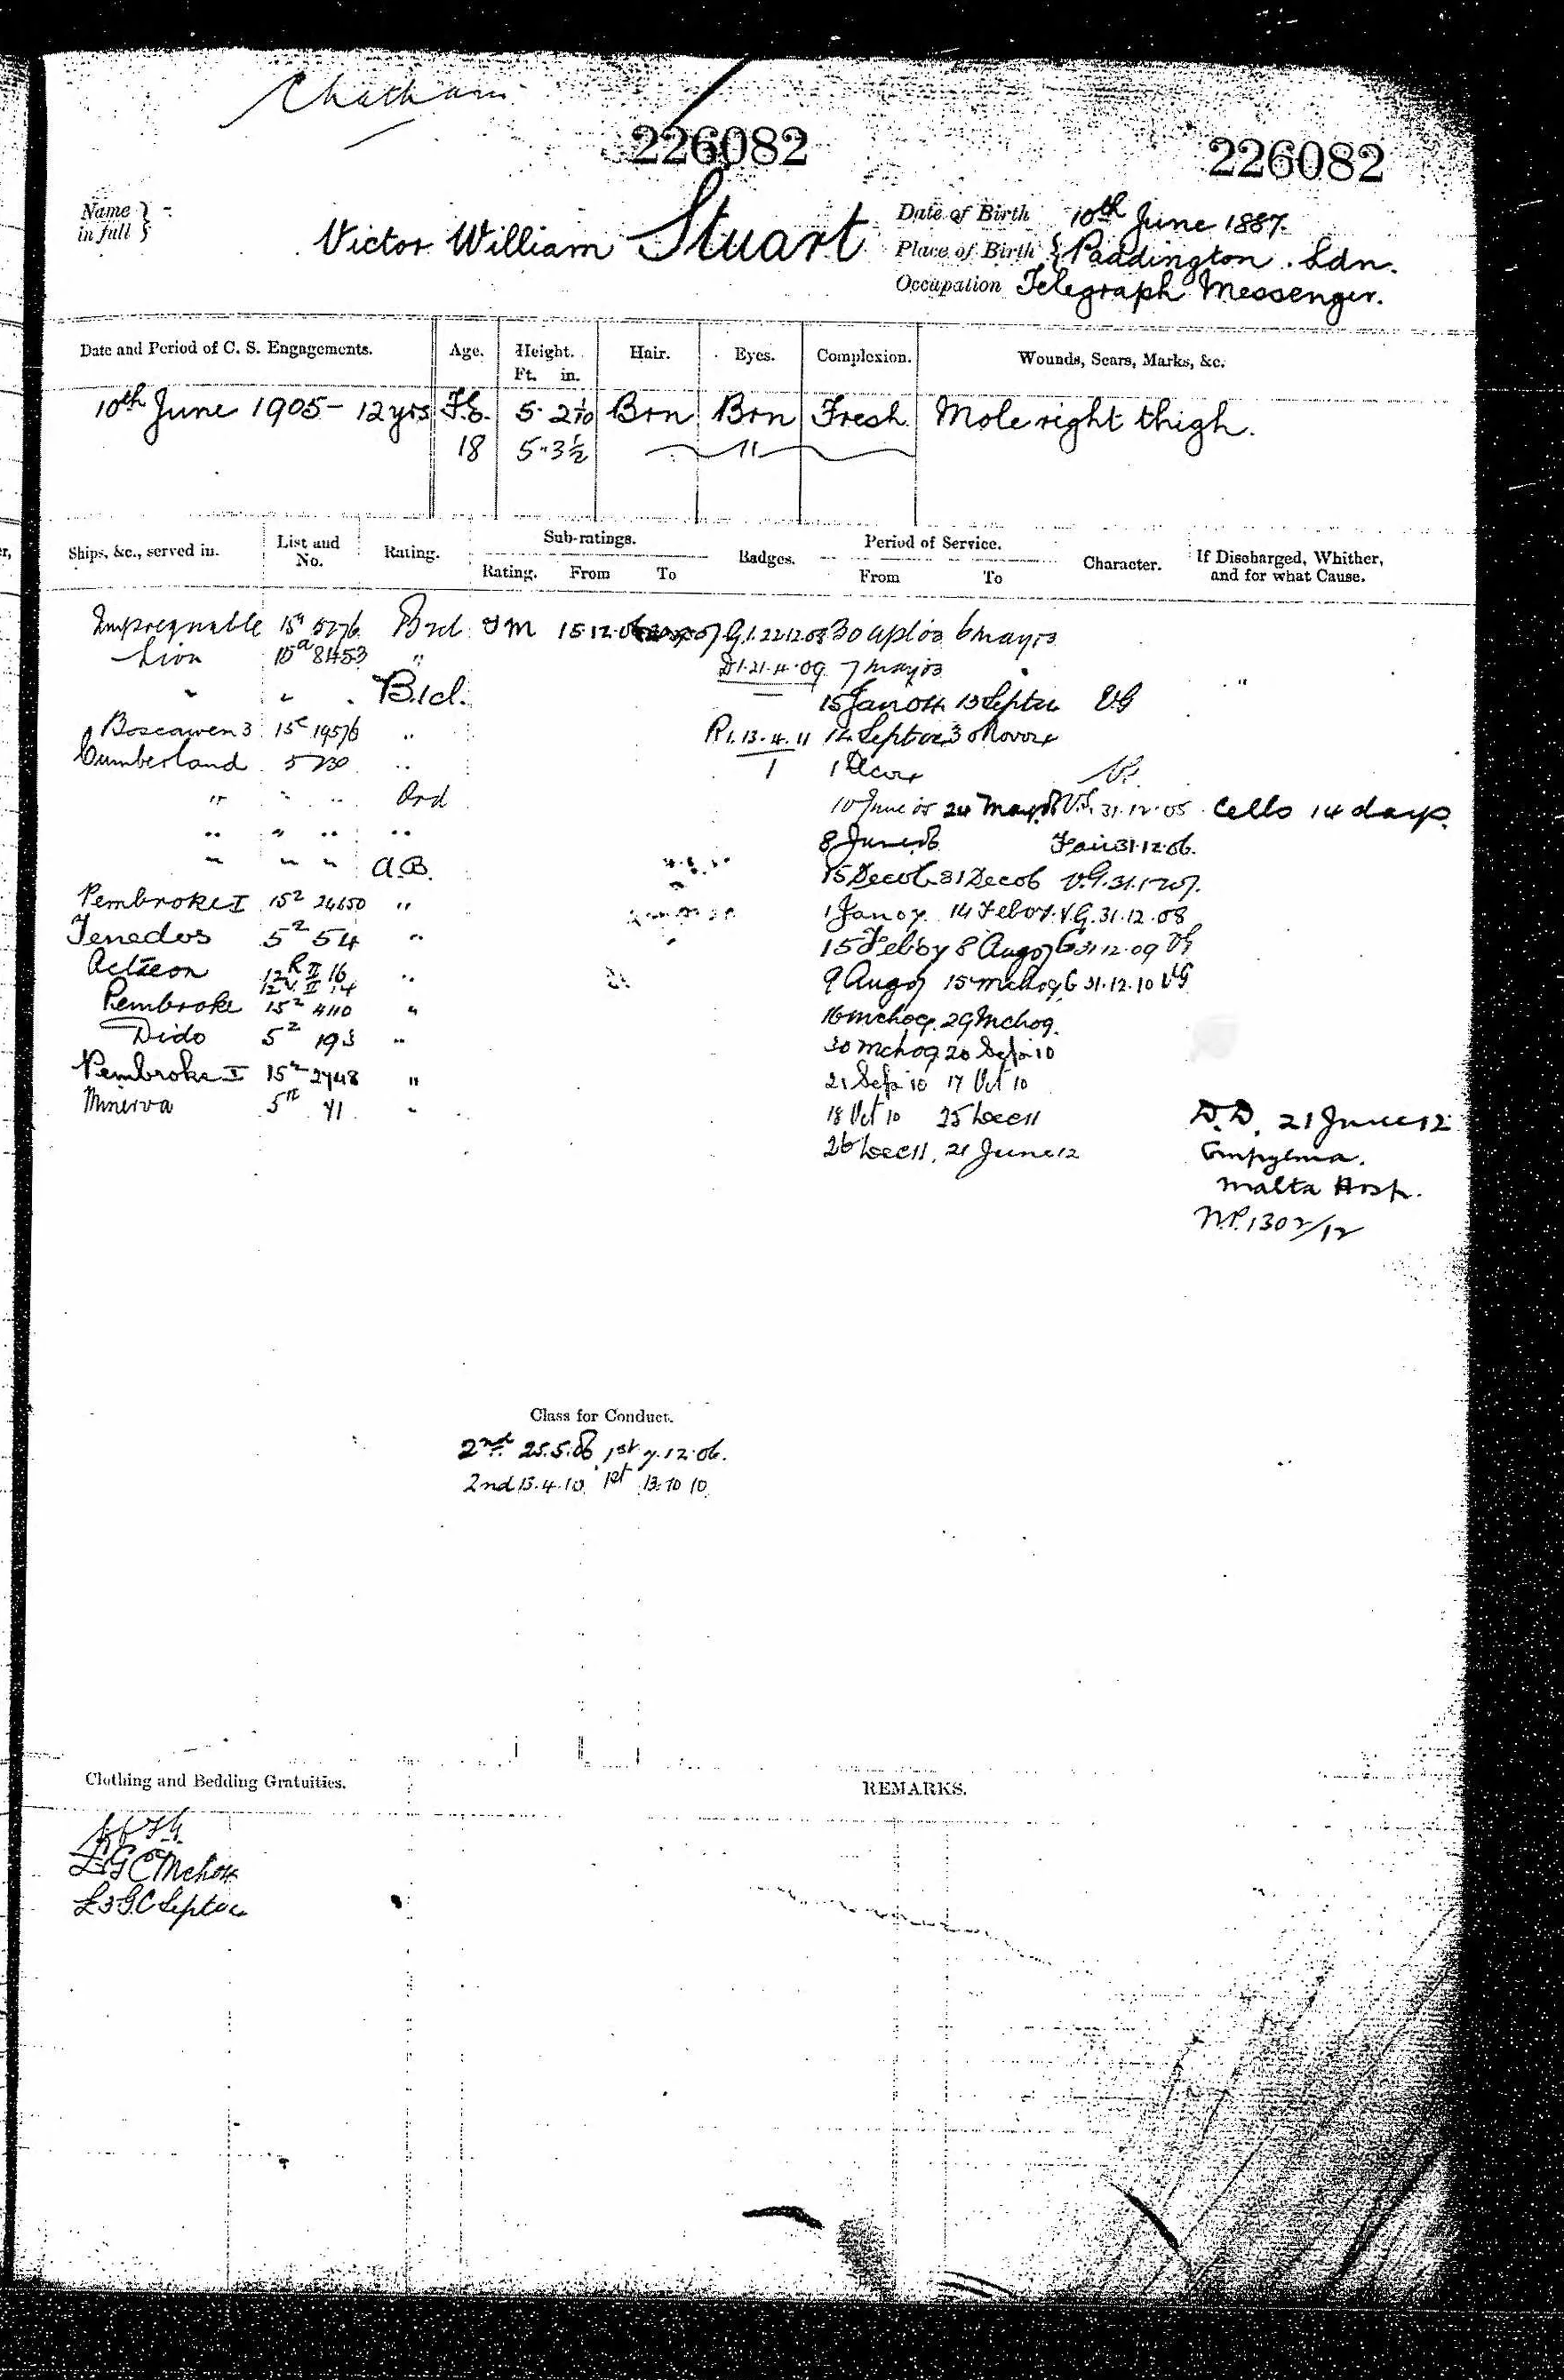 Chatham
226082 226082
Name in full } Victor William Stuart
Date of Birth 10th June 1887.
Place of Birth { Paddington. Ldn.
Occupation Telegraph Messenger.
Date and Period of C. S. Engagements. Age. Height. Ft. in. Hair. Eyes. Complexion. Wounds, Scars, Marks, &c.
10th June 1905 - 12 yrs 5. 2 1/10 Brn Brn Fresh Mole right thigh.
18 5.3½ "
Ships, &c., served in. List and No. Rating. Sub-ratings. Rating. From To Badges. Period of Service. From To Character. If Discharged, Whither, and for what Cause.
Impregnable 15a 5276 15.12.06 G.1.22.12.08 30 Apl 03 6 May 03
Lion 15a 8453 " D1.21.4.09 7 May 03
" " . B.1cl. 15 Jan 04 13 Sept 04 VG
Boscawen 3 15c 19576 " R1.13.4.11 14 Sept 04 30 Nov 04
Cumberland 5 230 " 1 1 Dec 04
" " " Ord 10 June 05 24 May 06 V.G. 31.12.05 Cells 14 days.
" " " " 8 June 06 Fair 31.12.06.
" " " A.B. 15 Dec 06 31 Dec 06 V.G. 31.12.07.
Pembroke I 15² 24650 " 1 Jan 07 14 Feb 07 V.G. 31.12.08
Tenedos 5² 54 " 15 Feb 07 8 Aug 07 G 31.12.09 VG
Actaeon 12 R II 16 12 V. II 14 " 9 Aug 07 15 Mch 09 G 31.12.10 VG
Pembroke 15² 4110 " 16 Mch 09 29 Mch 09.
Dido 5² 193 " 30 Mch 09 20 Sep 10
Pembroke I 15² 2748 " 21 Sep 10 17 Oct 10
Minerva 5 71 " 18 Oct 10 25 Dec 11
26 Dec 11, 21 June 12
D.D. 21 June 12
Empyema.
Malta Hosp.
N.P. 1302/12
Class for Conduct.
2nd 25.5.06 1st 7.12.06.
2nd 13.4.10 1st 13.10.10
Clothing and Bedding Gratuities. REMARKS.
Mch 04
£3 G.C Sept 04